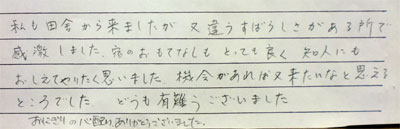 私も田舎から来ましたが 又違うすばらしさがある所で
感激しました、宿のおもてなしも とっても良く 知人にも
おしえてやりたく思いました。機会があれば又来たいなと思える
ところでした どうも有難うございました
おにぎりの心配りありがとうございました。